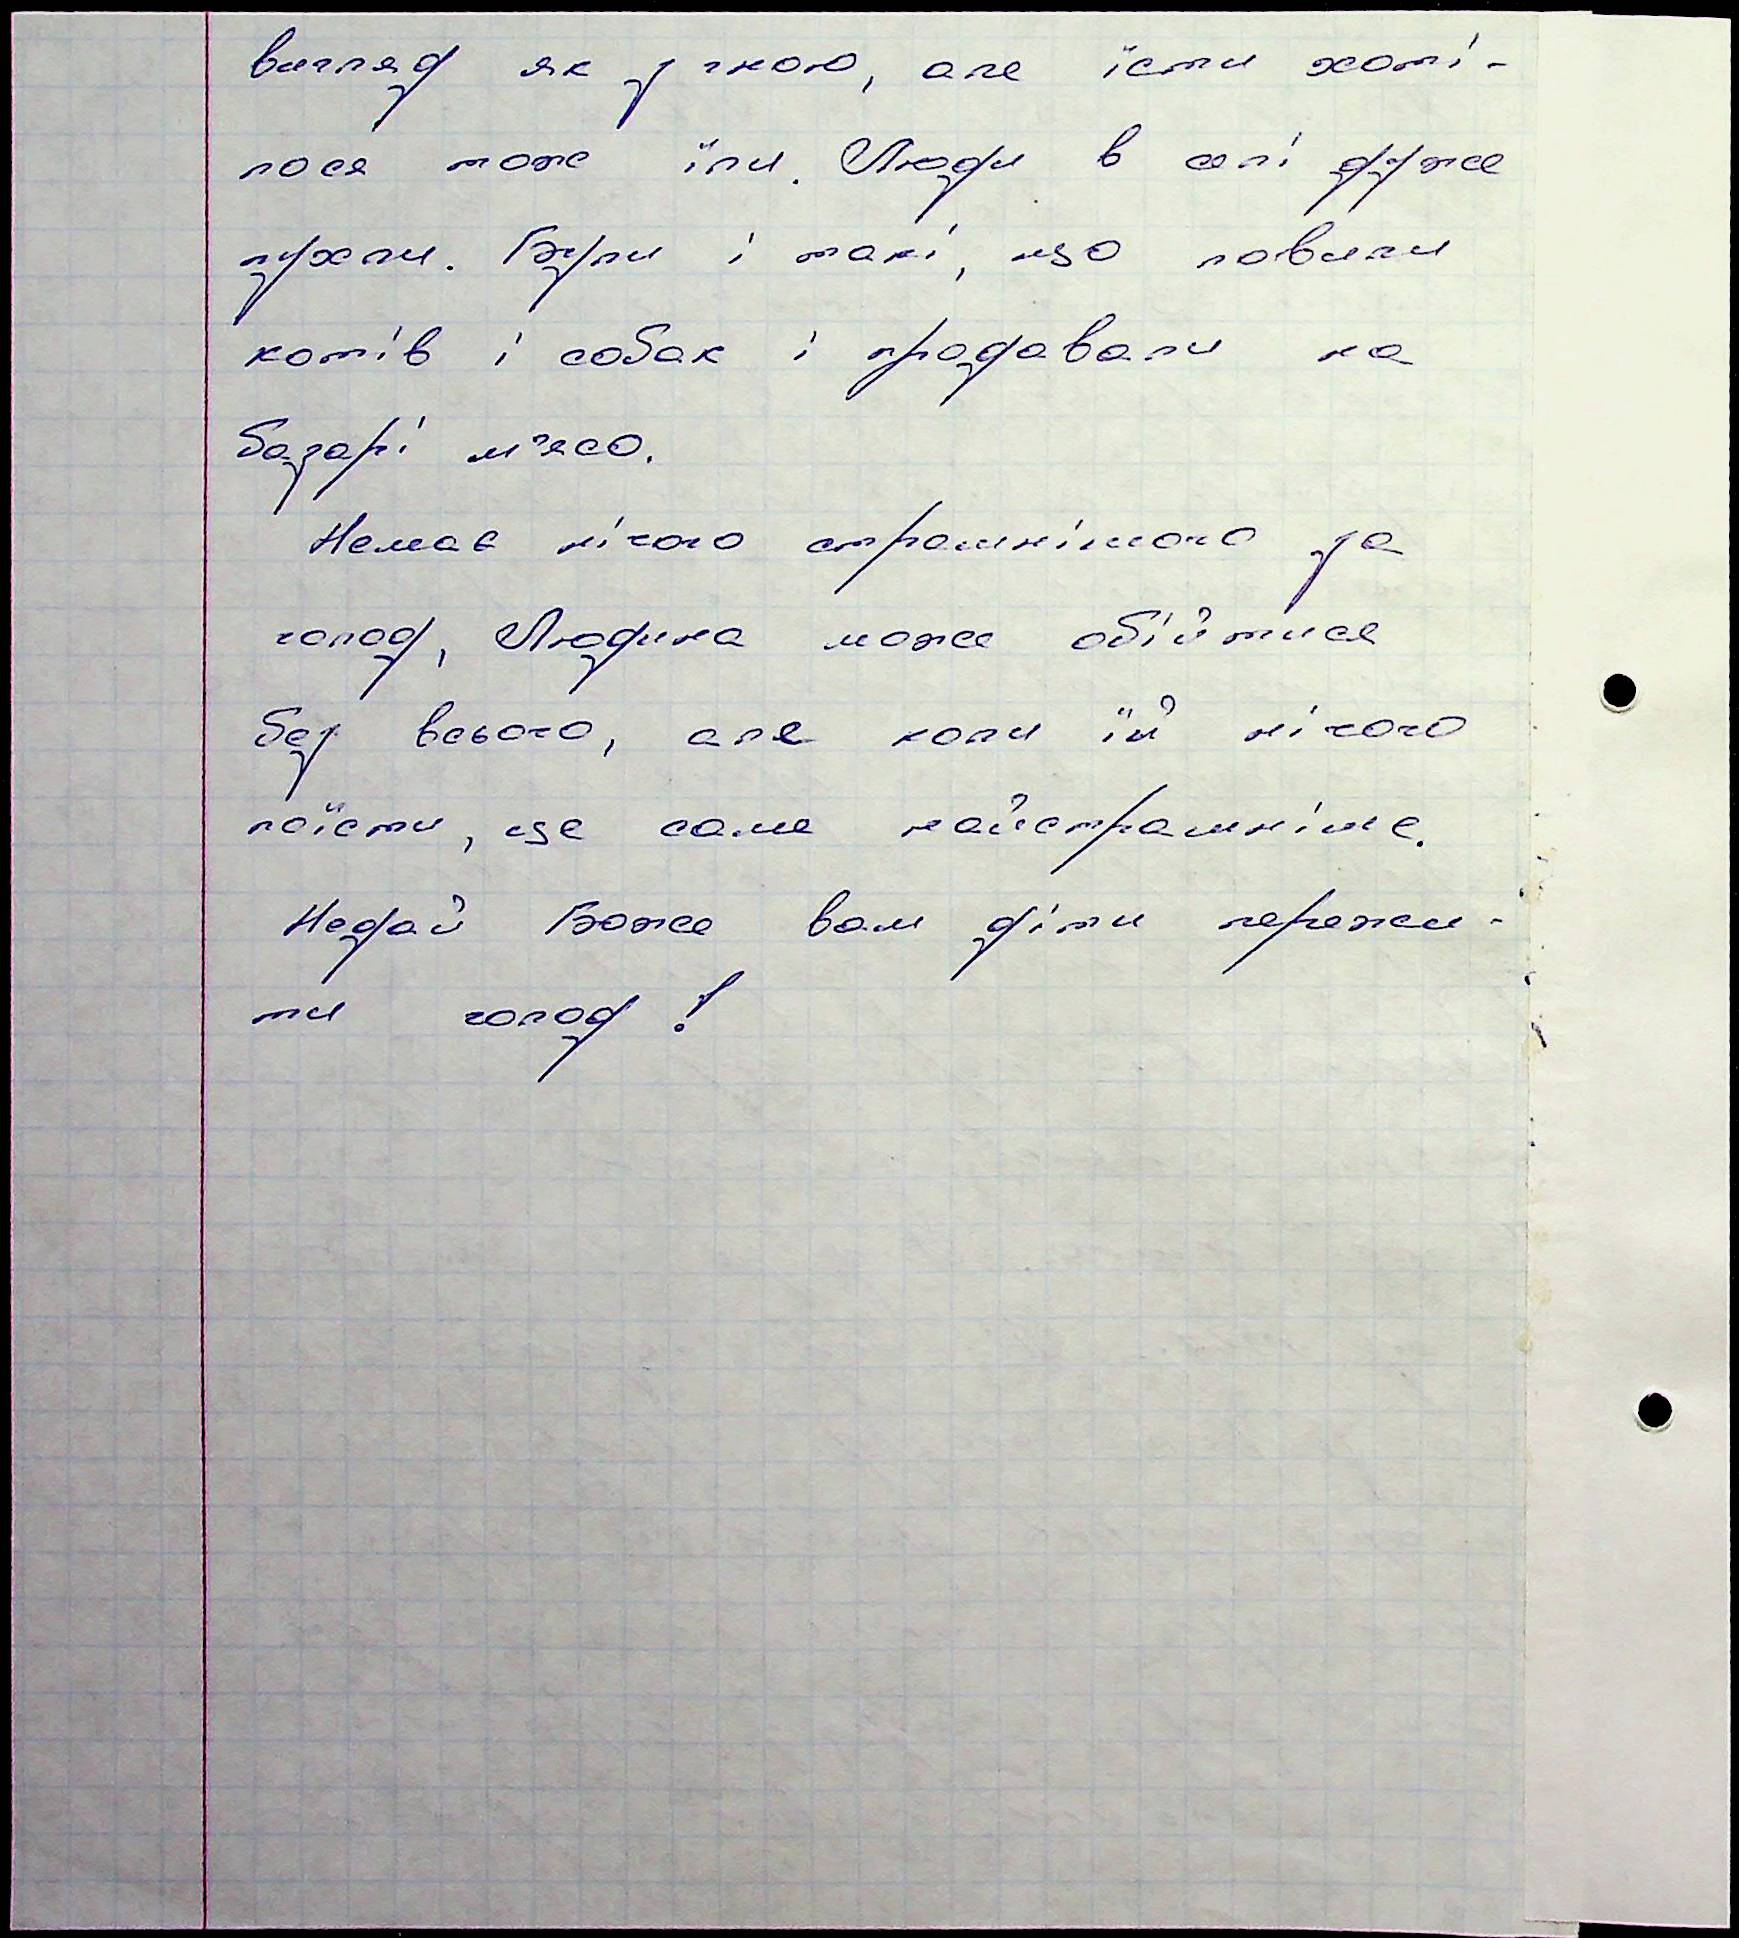 вигляд як з гною, але їсти хоті-
лося тож їли. Люди в селі дуже
пухли. Були і такі, що ловили
котів і собак і продавали на
базарі м'ясо.
Немає нічого страшнішого за
голод, Людина може обійтися
без всього, але коли їй нічого
поїсти, це саме найстрашніше.
Недай Боже вам діти пережи-
ти голод!